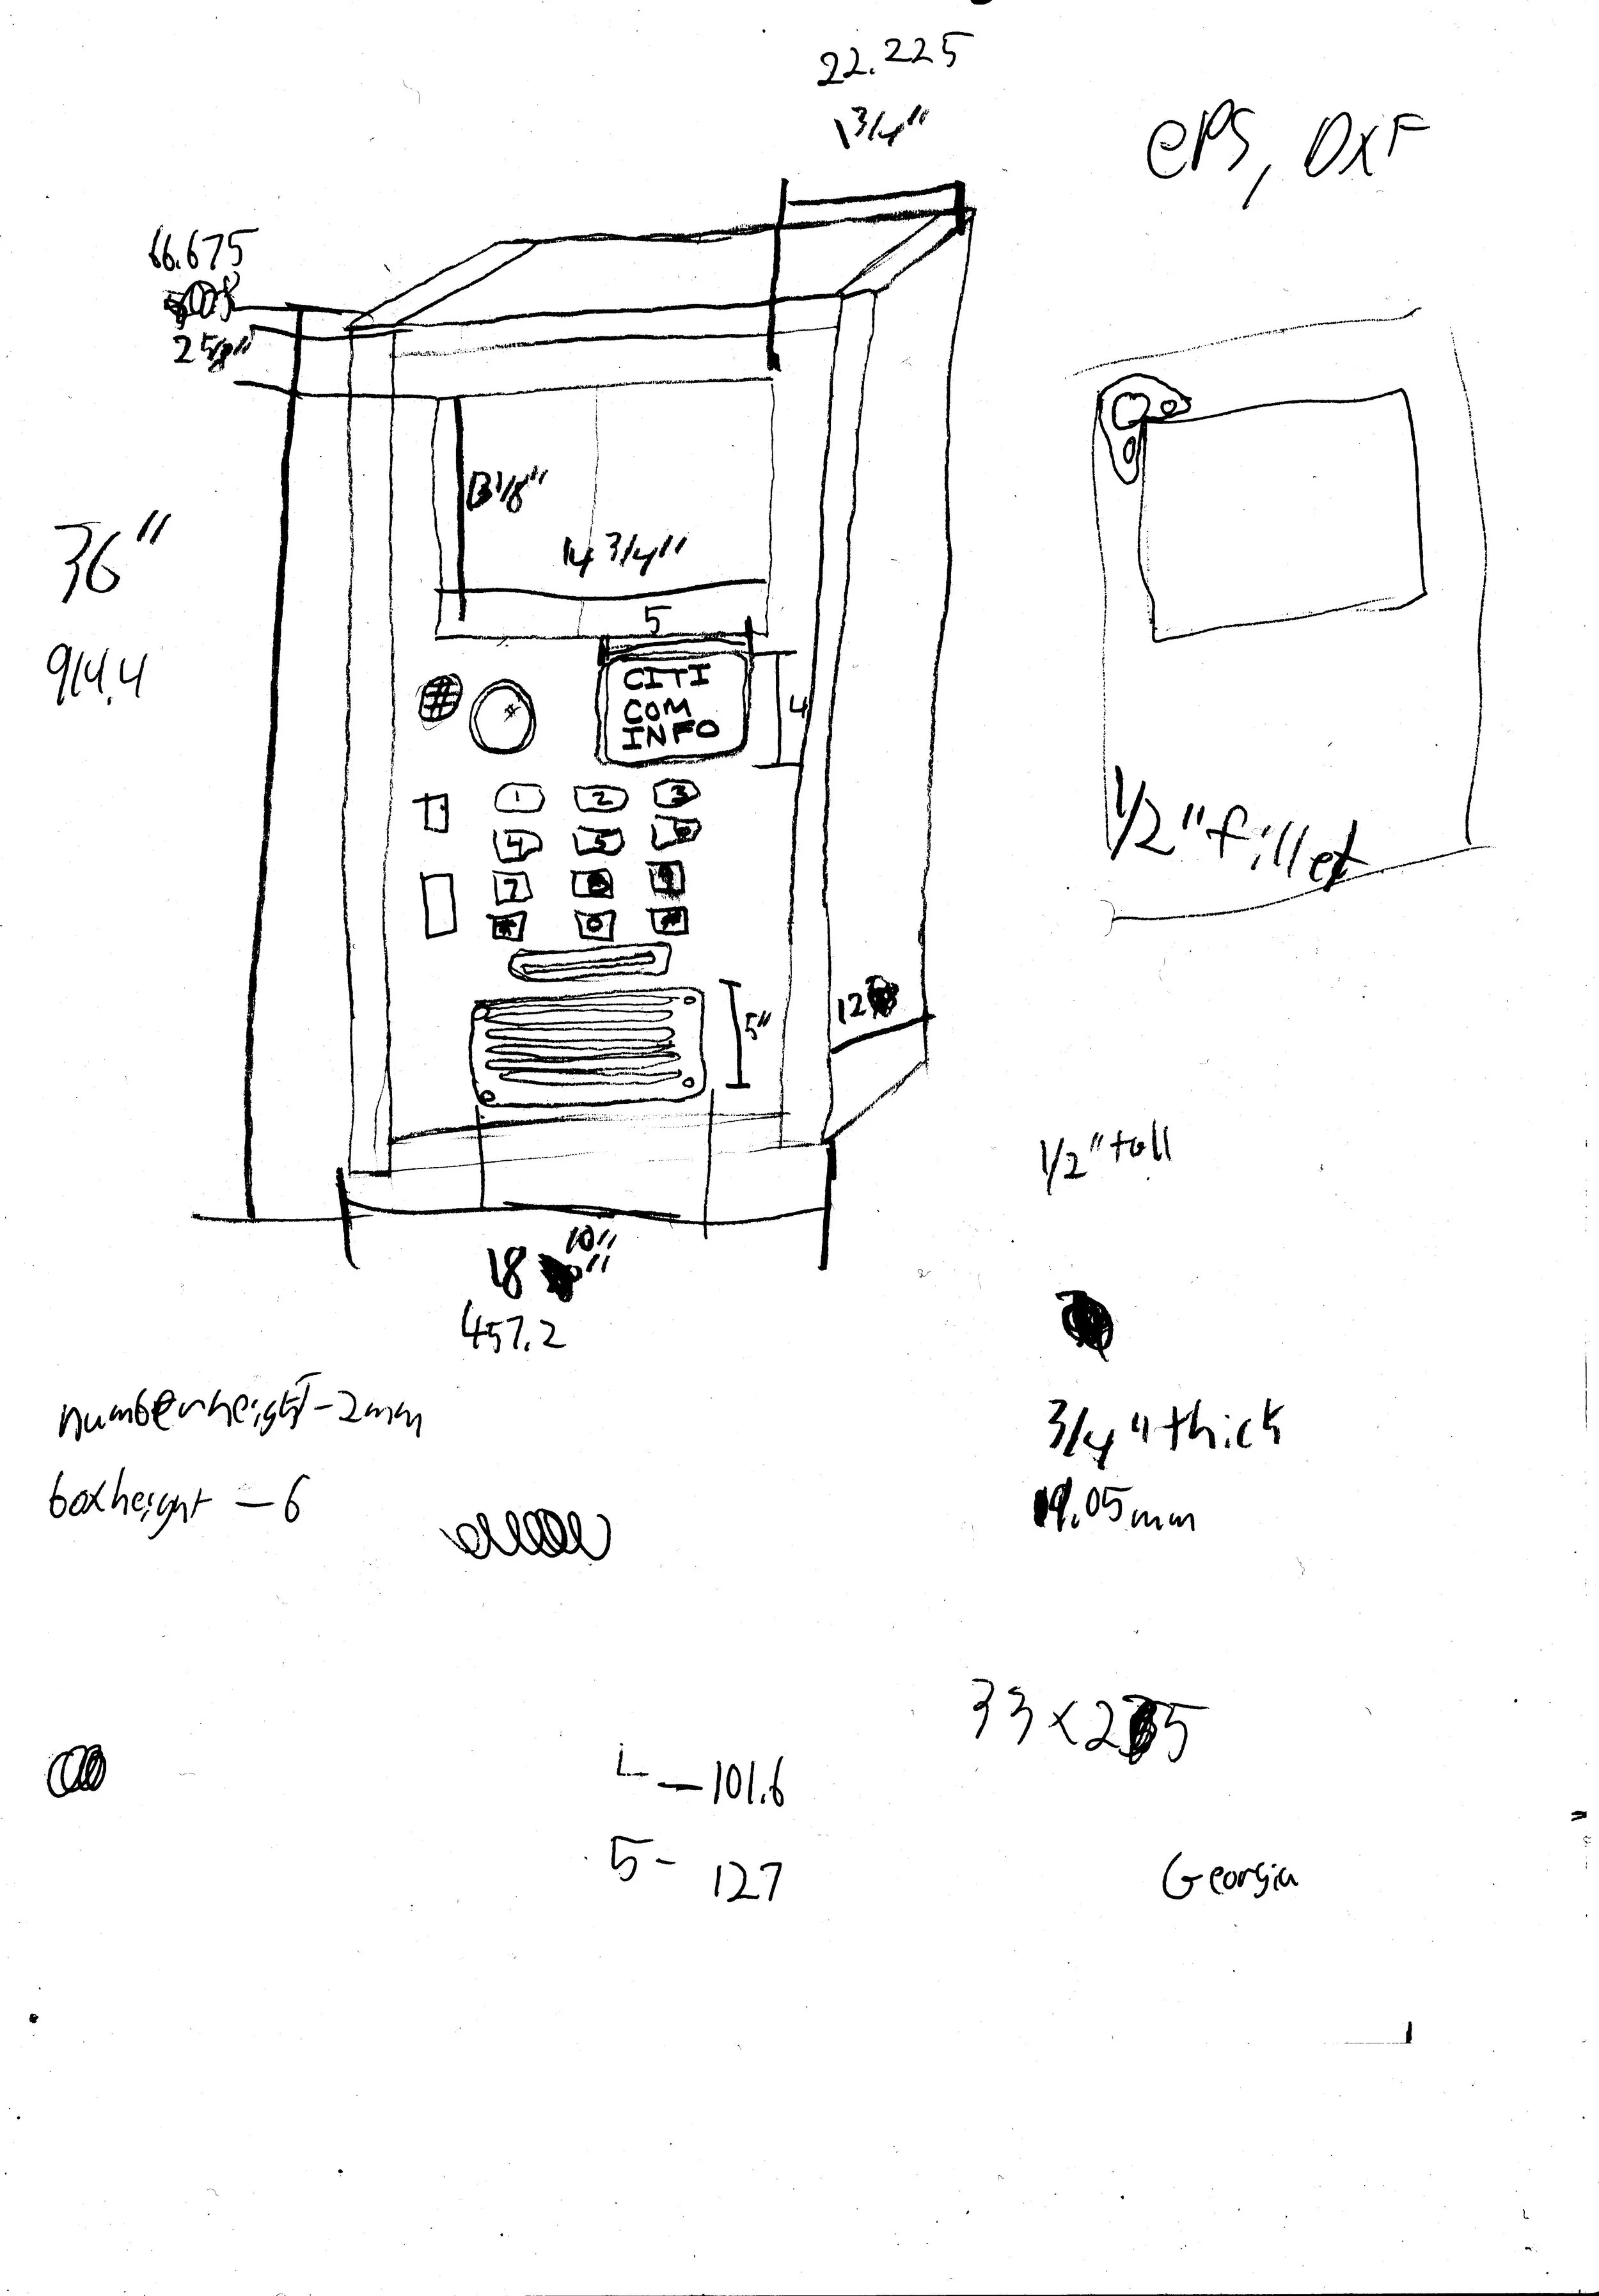 22.225
1 3/4"
ePS, DXF
66.675
2 5/8"
36"
914.4
13 1/8"
14 3/4"
5
CITI
COM
INFO
4
1 2 3
4 5
7
* 0 #
5"
12
10"
18"
457.2
1/2" fillet
1/2" tall
number height - 2mm
box height - 6
3/4" thick
19.05mm
33 x 2 5
101.6
5 - 127
Georgia